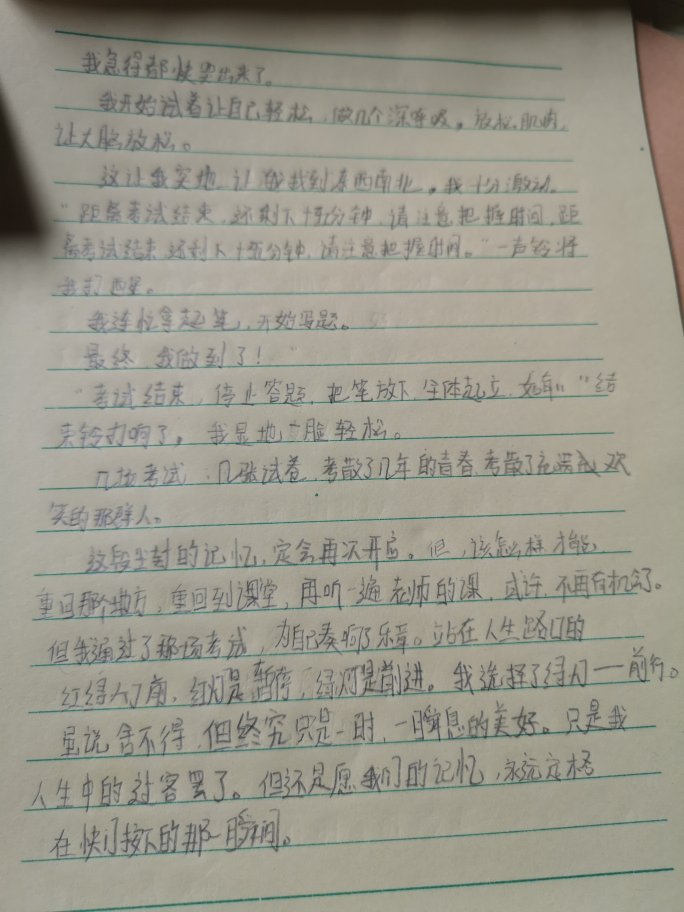 我急得都快哭出来了。
我开始试着让自己轻松，做几个深呼吸。放松肌肉，
让大脑放松。
这让我实地 让我找到东西南北。我十分激动。
“距离考试结束，还剩下十五分钟，请注意把握时间，距
离考试结束，还剩下十五分钟，请注意把握时间。”一声铃将
我打
我连忙拿起笔，开始写题。
最终，我做到了！
“考试结束，停止答题，把笔放下，全体起立，”结
束铃打响了。我显地脸轻松。
几场考试，几张试卷，考散了几年的青春，考散了欢
笑的那群人。
这段尘封的记忆，定会再次开启。但，该怎么样才能
重回那个地方，重回到课堂，再听一遍老师的课，或许，不再有机会了。
但我通过了那场考试，为自己奏响了乐章。站在人生路口的
红绿灯前，红灯是暂停，绿灯是前进。我选择了绿灯——前行。
虽说舍不得，但终究只是一时，一瞬息的美好。只是我
人生中的过客罢了。但还是愿我们的记忆，永远定格
在快门按下的那一瞬间。